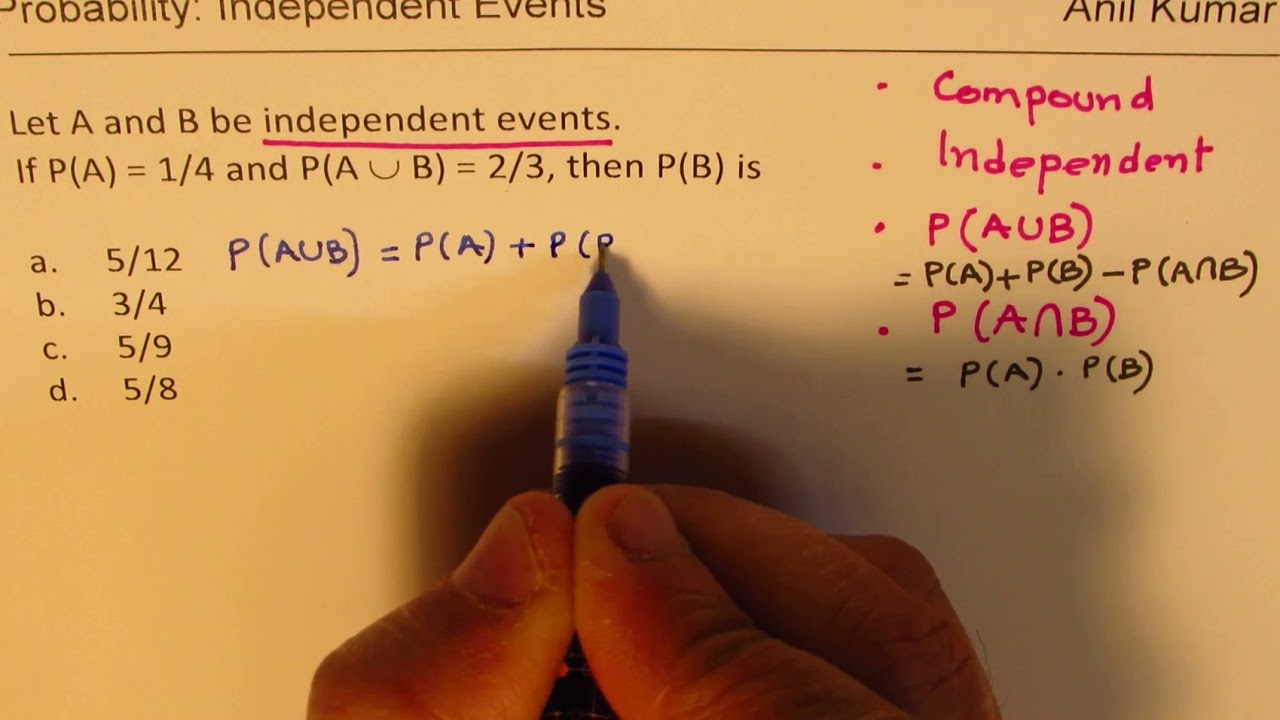 Probability: Independent Events
Anil Kumar
Let A and B be independent events.
If P(A) = 1/4 and P(A ∪ B) = 2/3, then P(B) is
a. 5/12
b. 3/4
c. 5/9
d. 5/8
P(A∪B) = P(A) + P(B
• Compound
• Independent
• P(A∪B)
= P(A)+P(B)−P(A∩B)
• P(A∩B)
= P(A) · P(B)